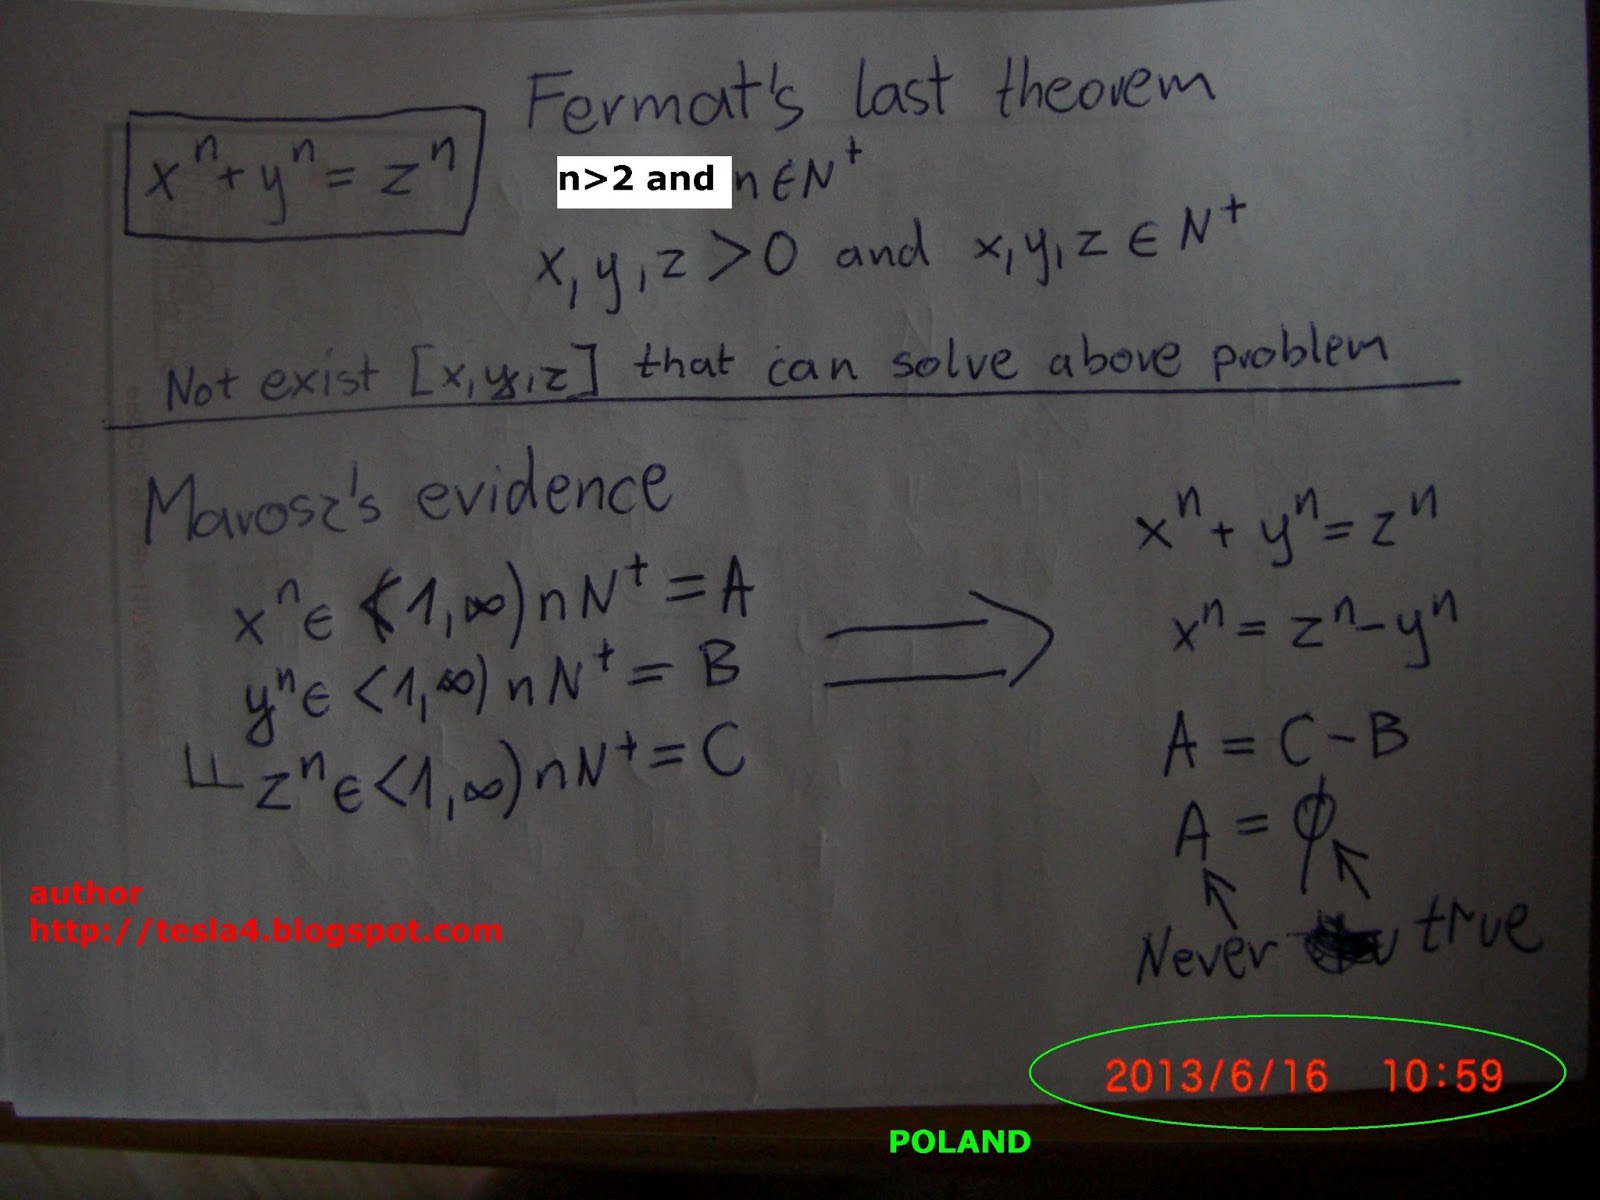 Fermat's last theorem
xⁿ + yⁿ = zⁿ
n>2 and n ∈ N⁺
x, y, z > 0 and x, y, z ∈ N⁺
Not exist [x, y, z] that can solve above problem
Marosz's evidence
xⁿ ∈ <1, ∞) n N⁺ = A
yⁿ ∈ <1, ∞) n N⁺ = B
zⁿ ∈ <1, ∞) n N⁺ = C
xⁿ + yⁿ = zⁿ
xⁿ = zⁿ - yⁿ
A = C - B
A = ϕ
Never true
author
http://tesla4.blogspot.com
2013/6/16 10:59
POLAND